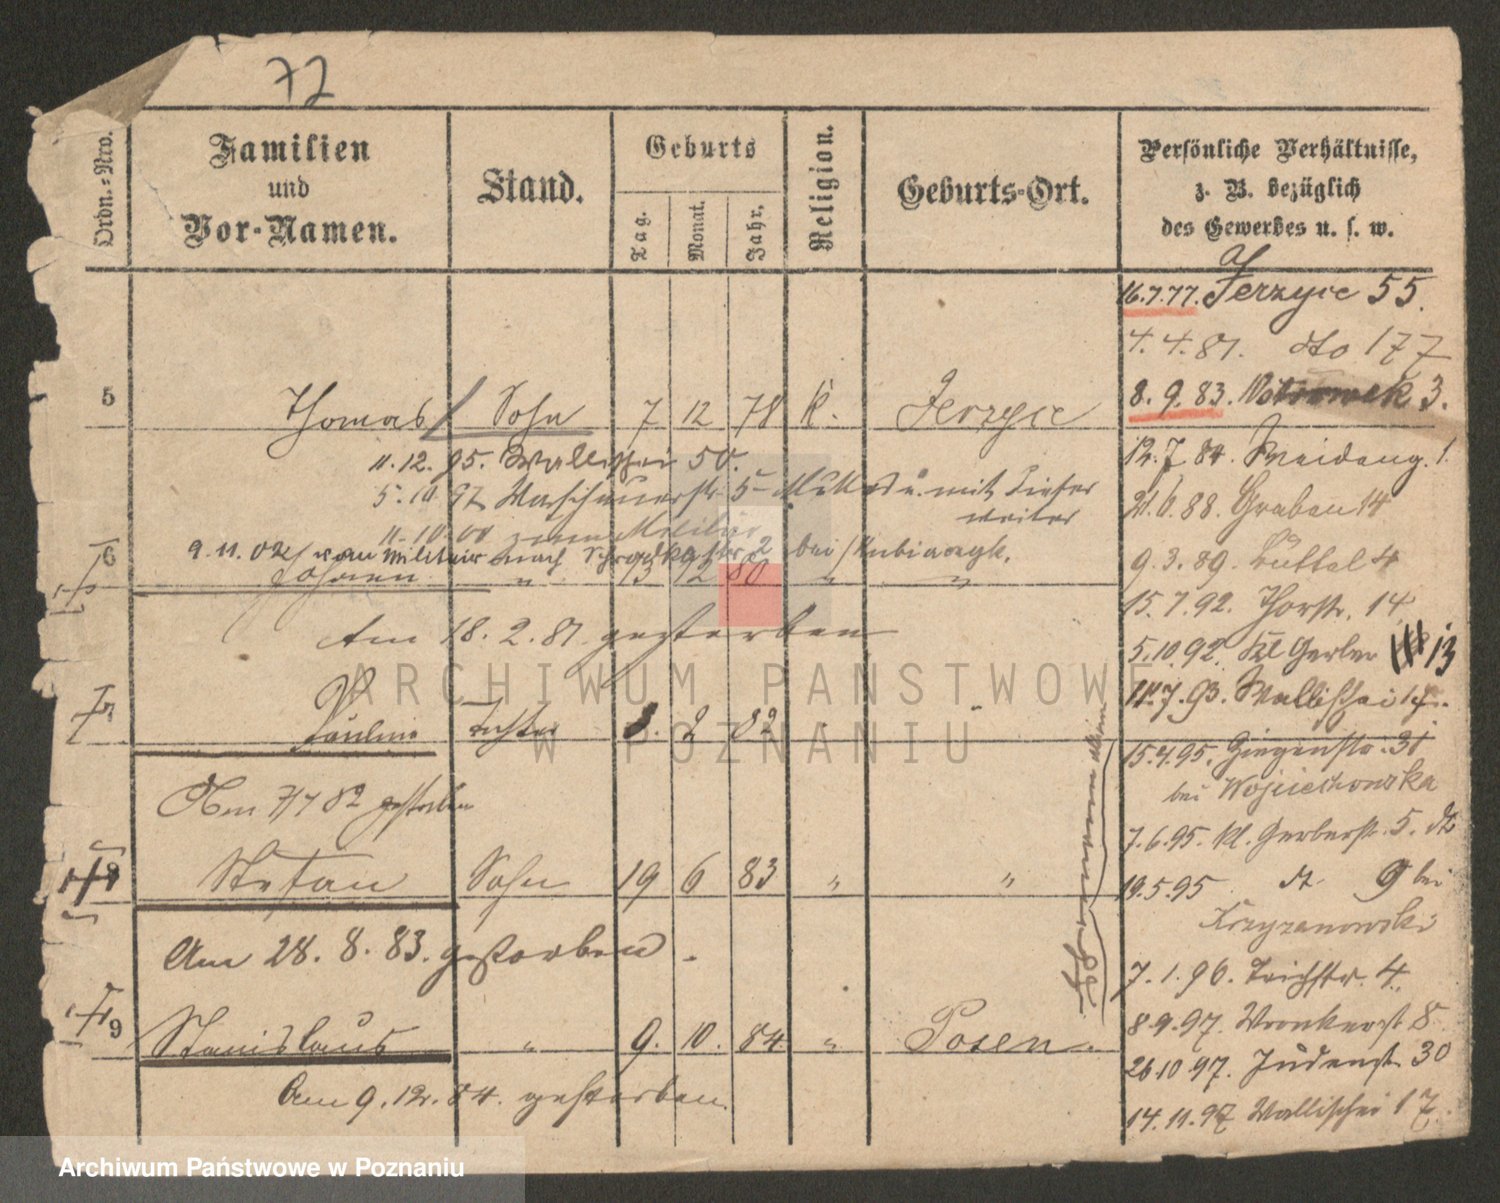 72
Ordn.-Nro.
Familien
und
Vor-Namen.
Stand.
Geburts
Tag.
Monat.
Jahr.
Religion.
Geburts-Ort.
Persönliche Verhältnisse,
z. B. bezüglich
des Gewerbes u. s. w.
16.7.77. Jerzyce 55.
4.4.81. dto 177
8.9.83. 3.
5 Thomas Sohn 7 12 78 K. Jerzyce
11.12.95. Wallischei 50.
5.10.97 Warschauerstr. 5 u. mit
weiter
11.10.00 zum Militär
9.11.02 vom Militair nach 2 bei
6 Johann " 80 " "
Am 18.2.81 gestorben
7 Pauline Tochter 2 82
Am 7/7 82 gestorben
8 Stefan Sohn 19 6 83 " "
Am 28.8.83. gestorben.
9 Stanislaus " 9. 10. 84 " Posen.
Am 9.12.84. gestorben.
12.7.84. 1.
21.6.88. Graben 14
9.3.89. 4
15.7.92. Thorstr. 14
5.10.92. Kl Gerber 13
11.7.93. Wallischei
15.4.95. Ziegenstr. 31
bei Wojciechowska
7.6.95. Kl. Gerberstr. 5.
19.5.95 9 bei
Krzyzanowski
7.1.96. Teichstr. 4.
8.9.97. Wronkerst 8
26.10.97. Judenst. 30
14.11.97 Wallischei 17.
ARCHIWUM PAŃSTWOWE
W POZNANIU
Archiwum Państwowe w Poznaniu